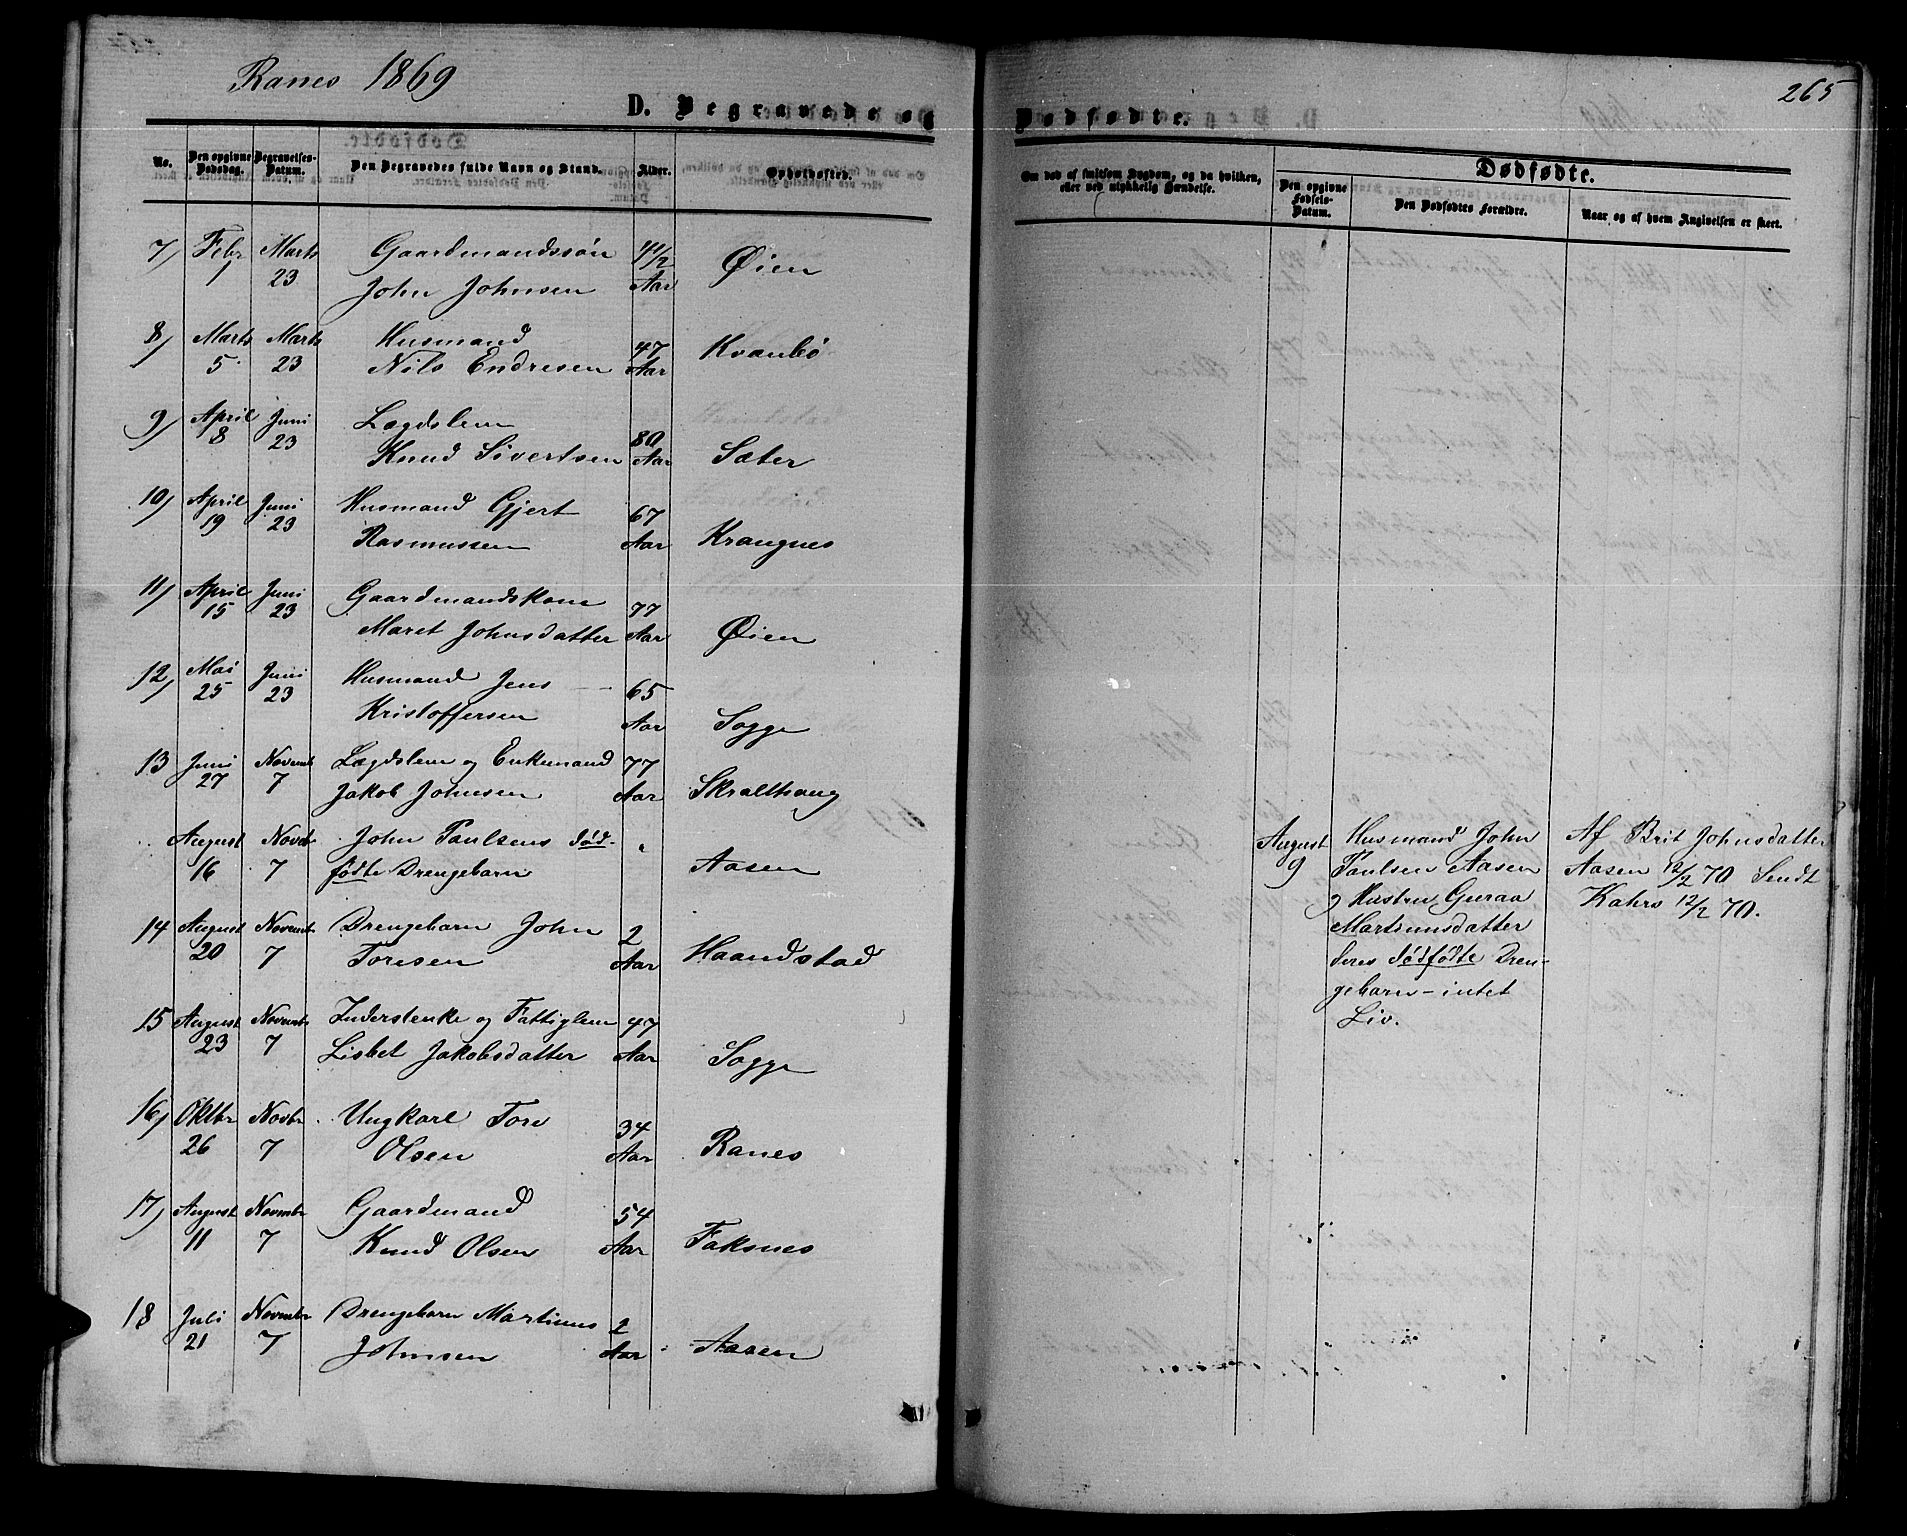 Ranes 1869
265
D. Begravede og Dødfødte.
No.
Den opgivne Dødsdag.
Begravelses-Datum.
Den Begravedes fulde Navn og Stand.
Alder.
Opholdssted.
Om død af smitsom Sygdom, og da hvilken,
eller ved ulykkelig Hændelse.
Dødfødte.
Den opgivne Fødsels-Datum.
Den Dødfødtes Forældre.
Naar og af hvem Angivelsen er skeet.
7) Febr Marts Gaardmandssøn
1 23 John Johnsen Aar Øien
8) Marts Marts Husmand 47 Kvanbø
5 23 Nils Endresen Aar
9) April Juni Lægdslem 80
8 23 Knud Sivertsen Aar Sæter
10) April Juni Husmand Gjert 67
19 23 Rasmussen Aar Krangnes
11) April Juni Gaardmandskone 77
15 23 Maret Johnsdatter Aar Øien
12) Mai Juni Husmand Jens 65
25 23 Kristoffersen Aar Sogge
13 Juni Novemb Lægdslem og Enkemand 77
27 7 Jakob Johnsen Aar Skralthaug
August Novbr John Paulsens død-
16 7 fødte Drengebarn Aasen
14 August Novemb Drengebarn John 2
20 7 Toresen Aar Haandstad
15 August Novemb Inderstenke og Fattiglem 47
23 7 Lisbet Jakobsdatter Aar Sogge
16) Oktbr Novbr Ungkarl Tore 34
26 7 Olsen Aar Ranes
17) August Novembr Gaardmand 54
11 7 Knud Olsen Aar Faksnes
18 Juli Novembr Drengebarn Martinus 2
21 7 Johnsen Aar Aasen
August
9
Husmand John
Paulsen Aasen
og Hustru Guraa
Martinusdatter
deres dødfødte Dren-
gebarn - intet
Liv.
Af Brit Johnsdatter
Aasen 12/2 70 Sendt
12/2 70.